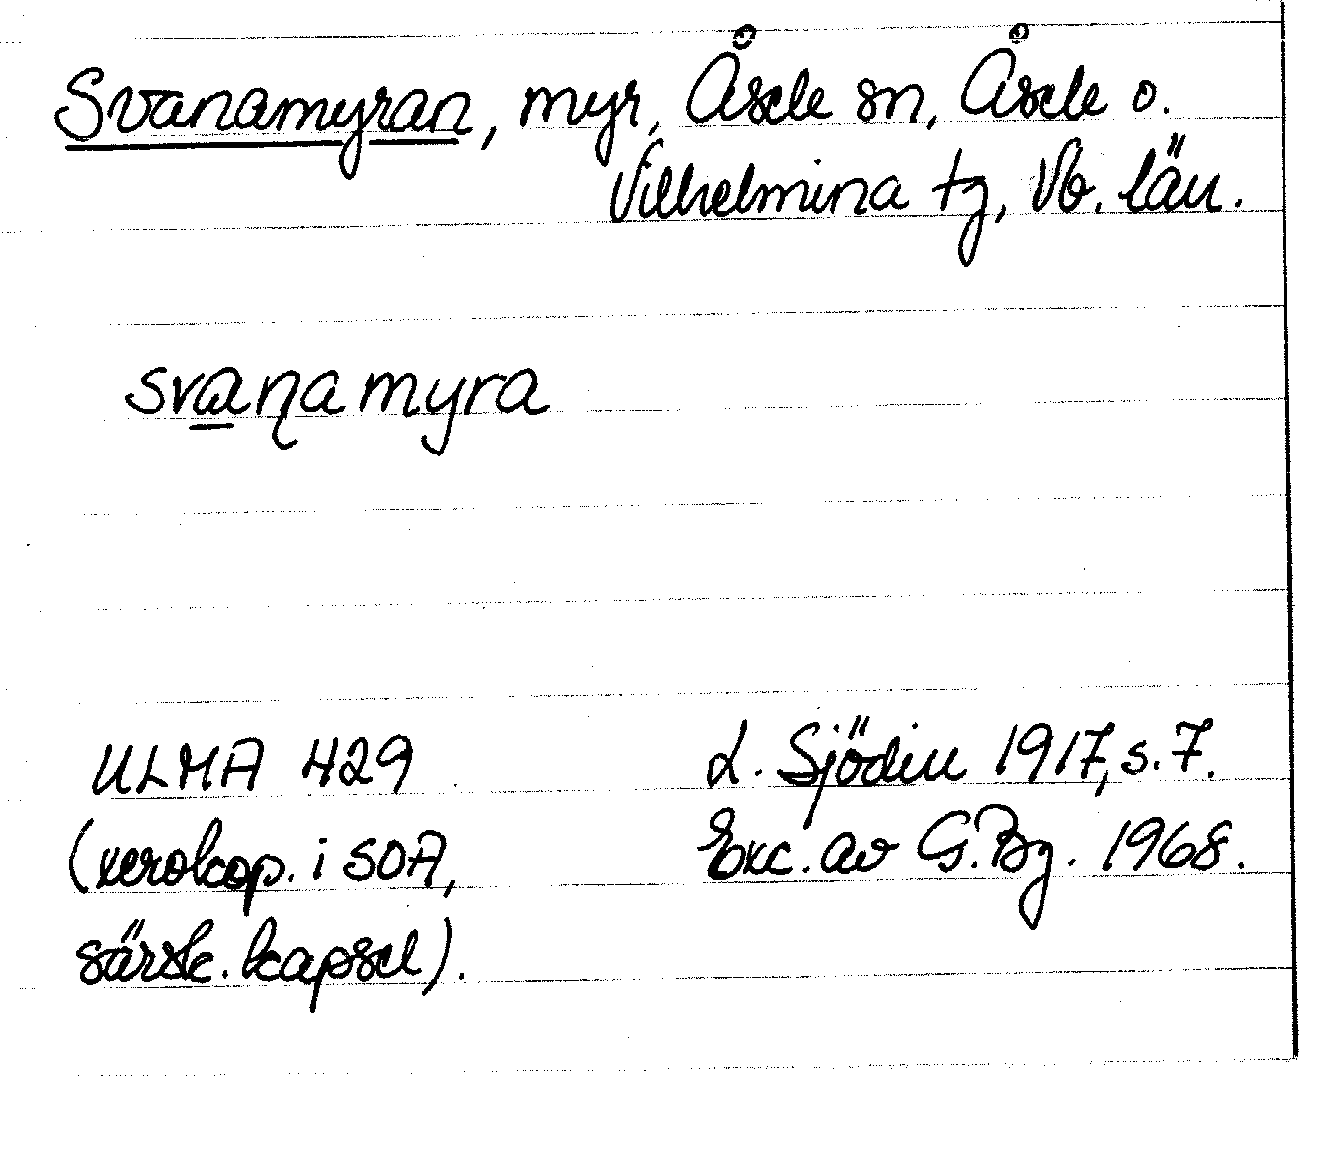 Svanamyran, myr, Åsele sn, Åsele o.
Vilhelmina tg, Vb. län.
svaṇa myra
ULMA 429
L. Sjödin 1917, s. 7.
(xerokop. i SOA,
Exc. av G. Bg. 1968.
särsk. kapsel).